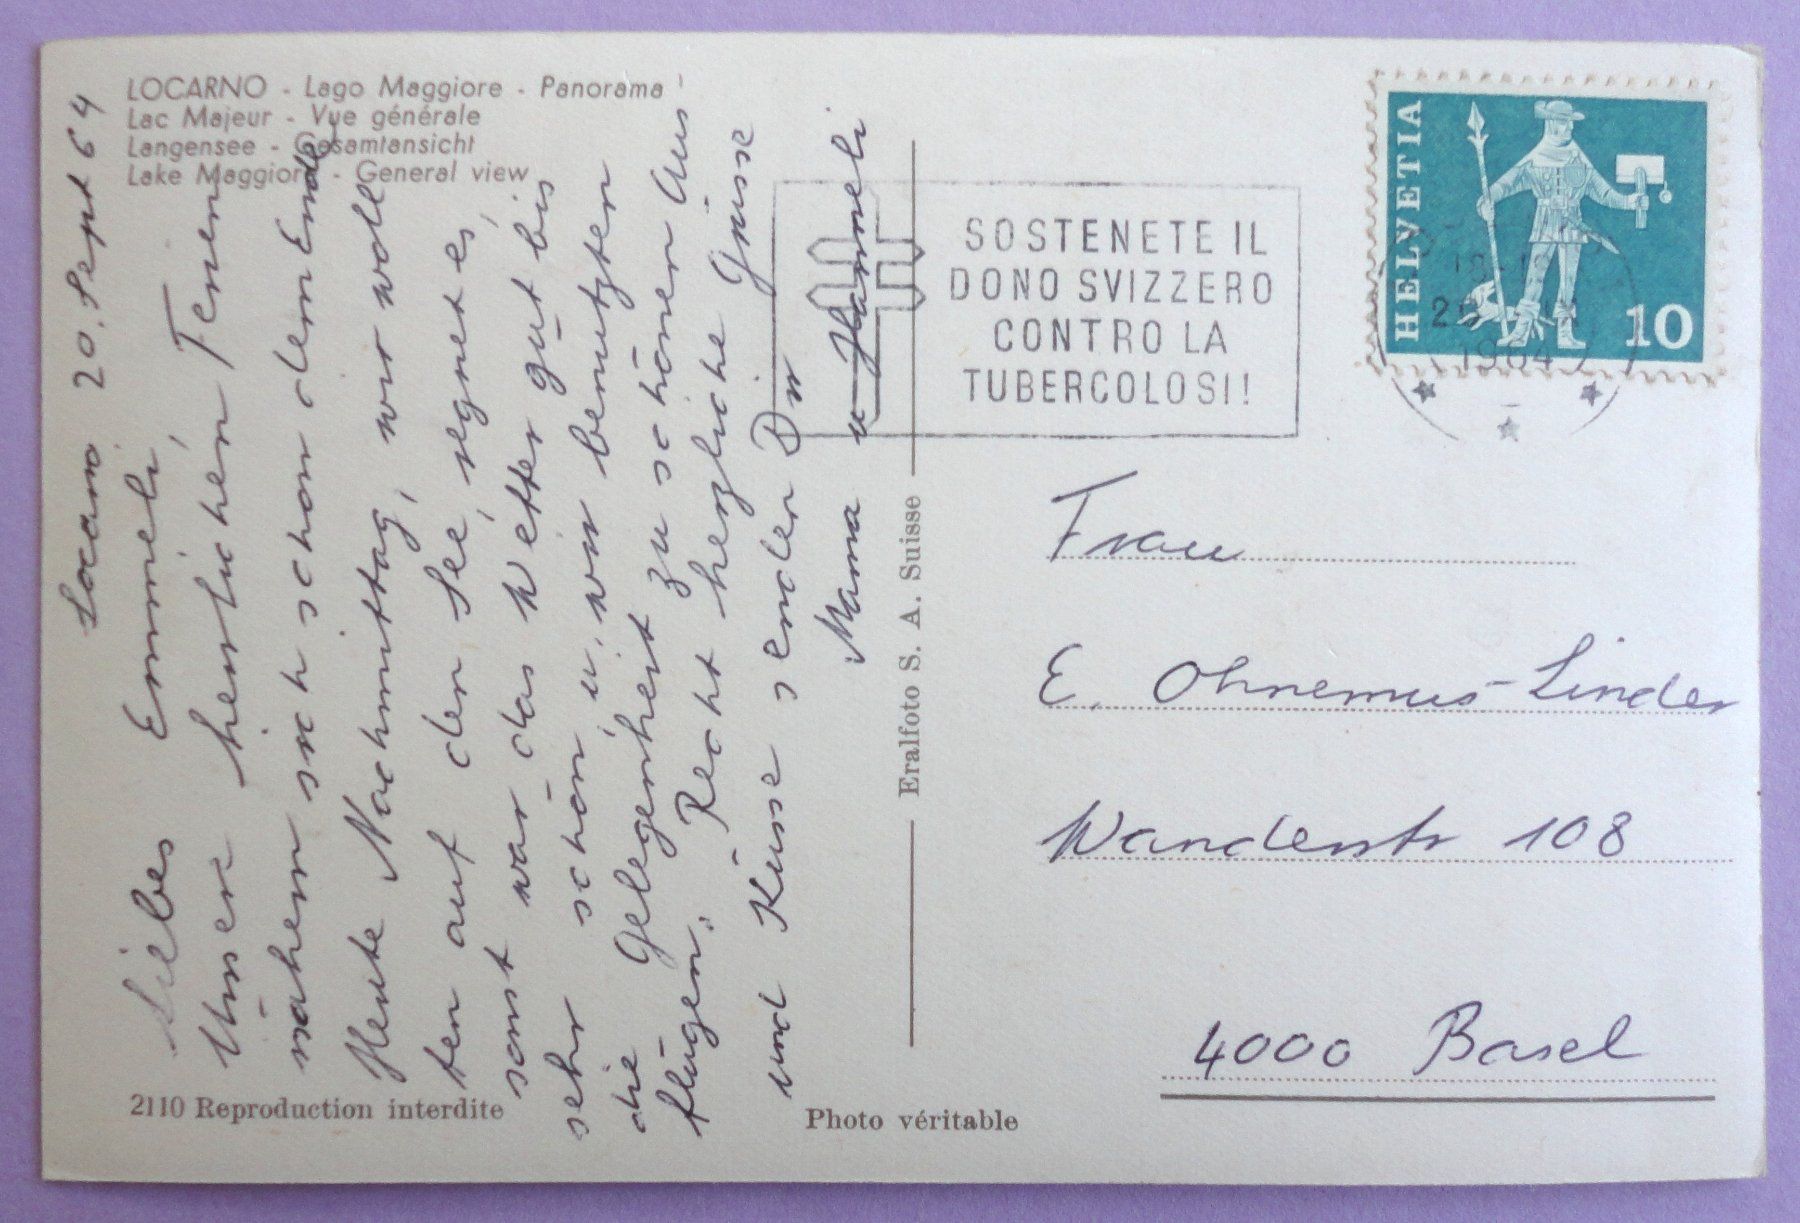 LOCARNO - Lago Maggiore - Panorama
Lac Majeur - Vue générale
Langensee - Gesamtansicht
Lake Maggiore - General view
Locarno 20. Sept 64
Liebes Emmeli,
Unsere herrlichen Ferien
nähern sich schon dem Ende.
Heute Nachmittag, wir woll
ten auf den See, regnet es,
sonst war das Wetter gut bis
sehr schön, u. wir benutzten
die Gelegenheit zu schönen Aus
flügen. Recht herzliche Grüsse
und Küsse senden Dir
Mama u Hanneli
2110 Reproduction interdite
Photo véritable
Eralfoto S. A. Suisse
SOSTENETE IL
DONO SVIZZERO
CONTRO LA
TUBERCOLOSI!
HELVETIA
10
1964
Frau
E. Ohnemus-Linder
Wanderstr 108
4000 Basel